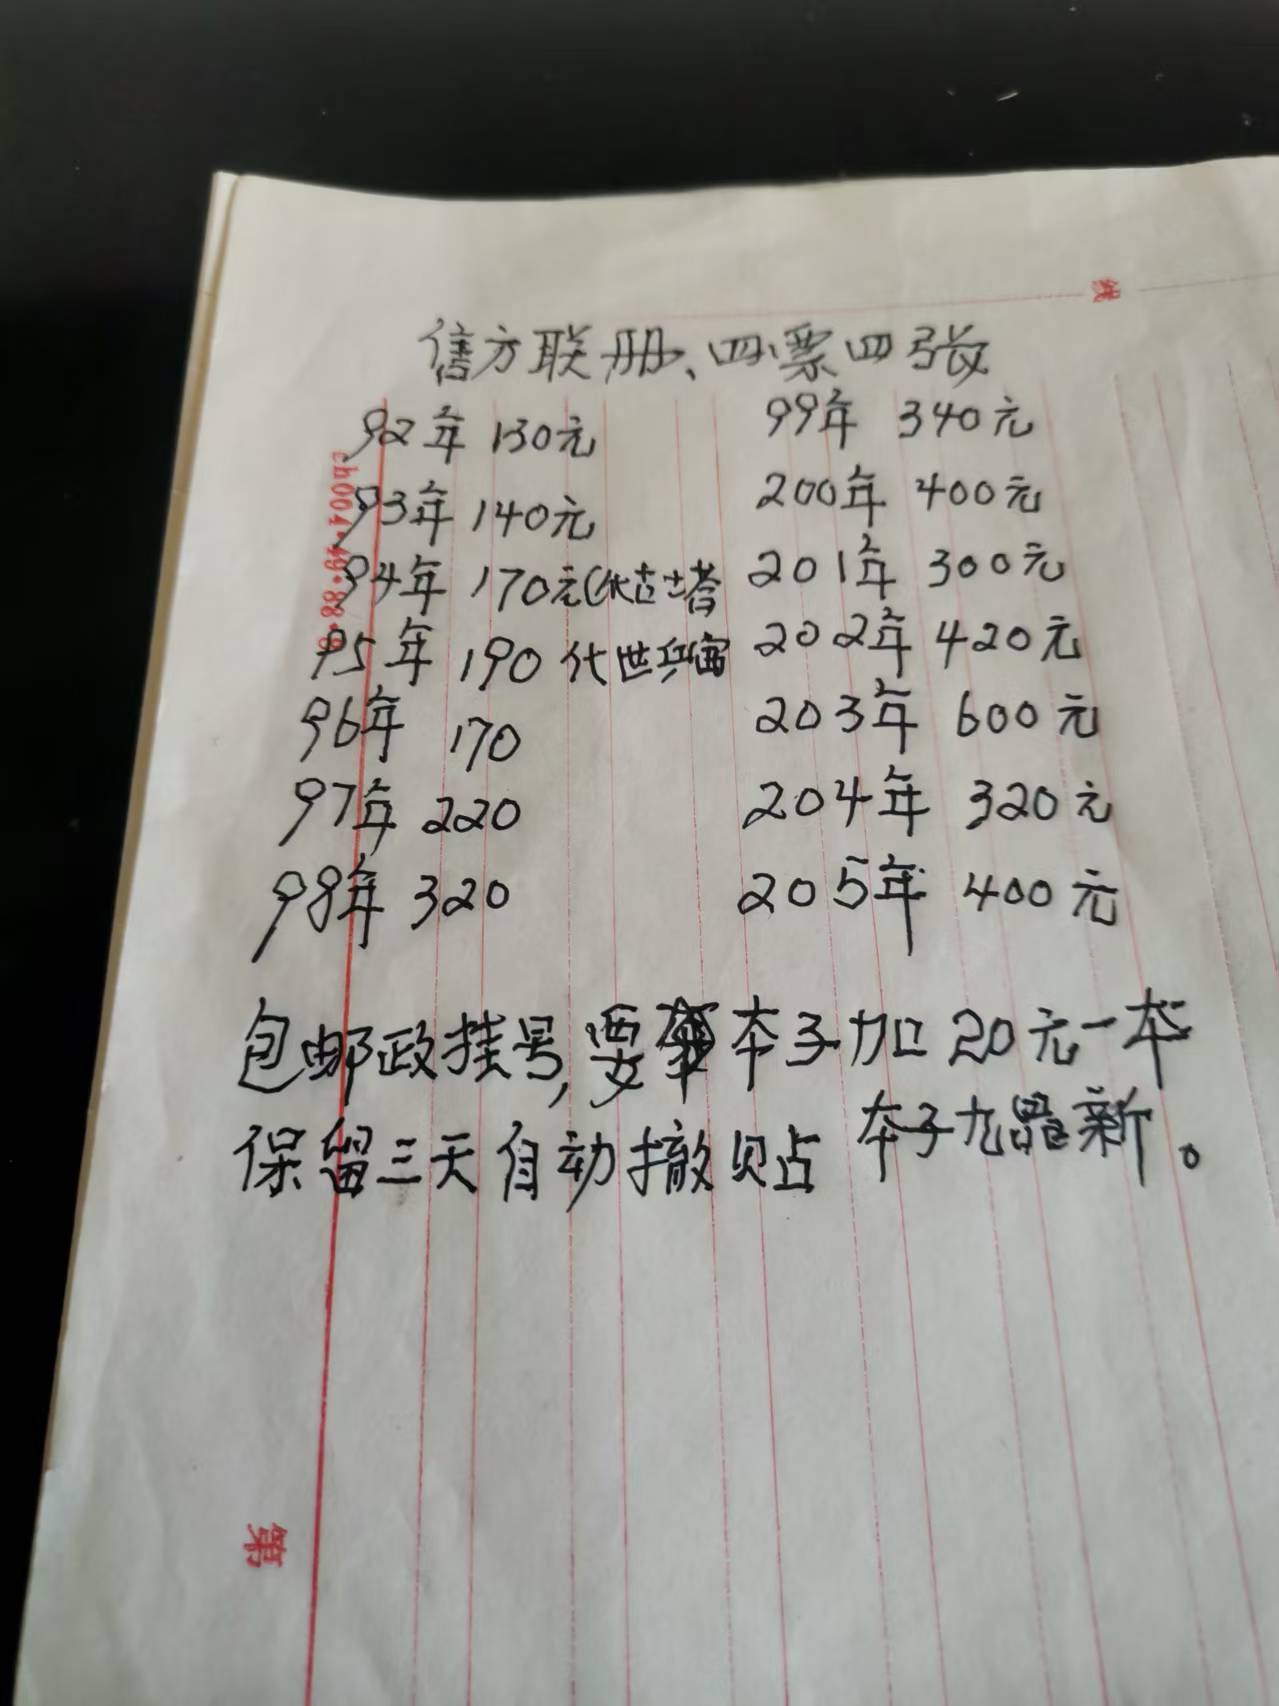 线
售方联册、四票四张
92年 130元
93年 140元
94年 170元(代古塔
95年 190 代世乒宙
96年 170
97年 220
98年 320
99年 340元
200年 400元
201年 300元
202年 420元
203年 600元
204年 320元
205年 400元
包邮政挂号,要 本子加20元一本
本子九品新。
保留三天自动撤贝占
第